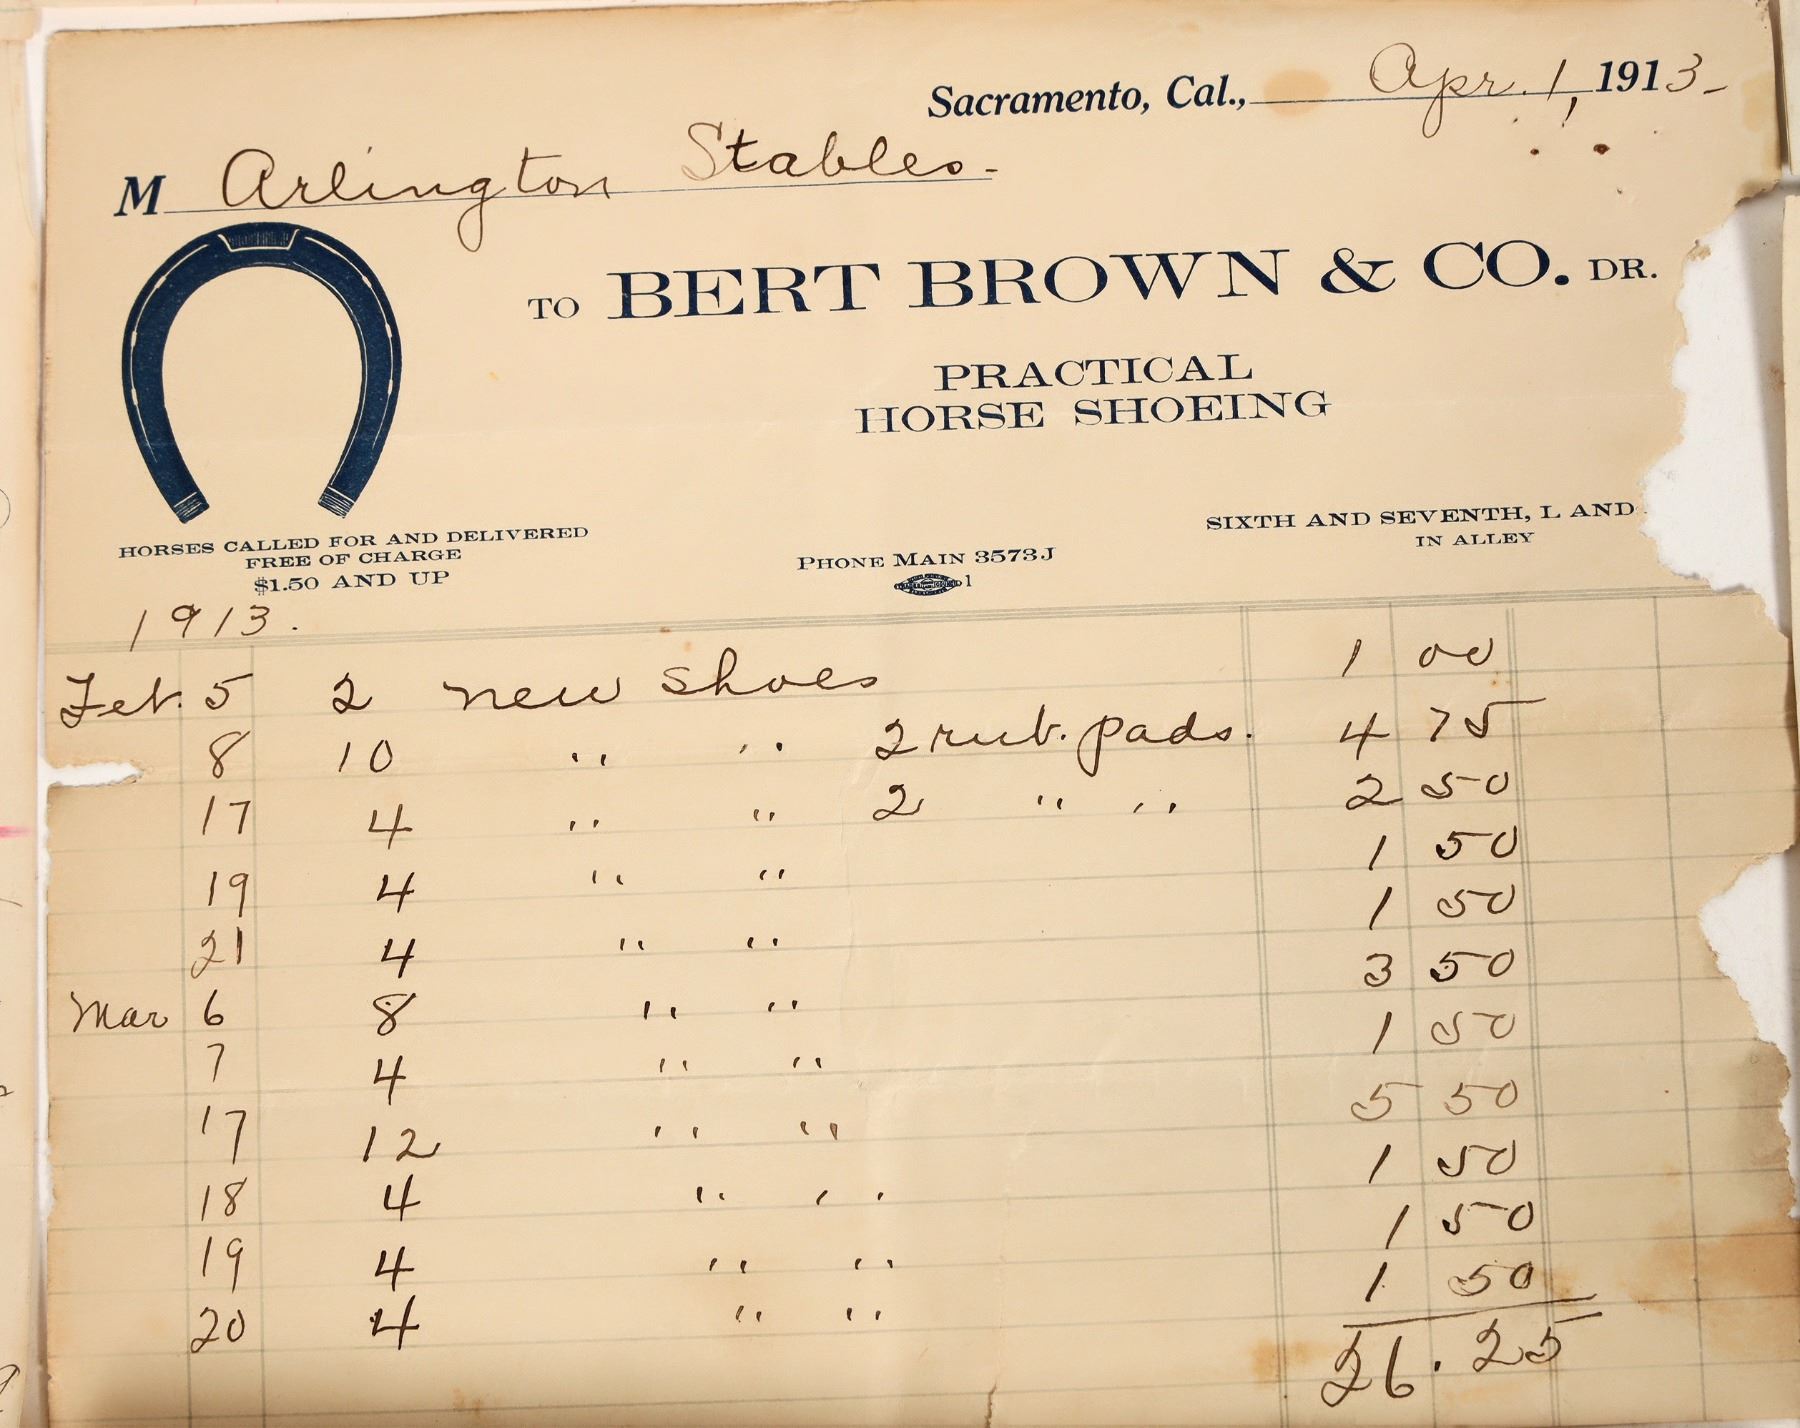 Sacramento, Cal., Apr. 1, 1913-
M Arlington Stables-
TO BERT BROWN & CO. DR.
PRACTICAL
HORSE SHOEING
HORSES CALLED FOR AND DELIVERED
FREE OF CHARGE
$1.50 AND UP
PHONE MAIN 3573J
1
SIXTH AND SEVENTH, L AND
IN ALLEY
1913.
Feb. 5 2 new shoes 1 00
8 10 " " 2 rub. pads. 4 75
17 4 " " 2 " " 2 50
19 4 " " 1 50
21 4 " " 1 50
Mar 6 8 " " 3 50
7 4 " " 1 50
17 12 " " 5 50
18 4 " " 1 50
19 4 " " 1 50
20 4 " " 1 50
26.25